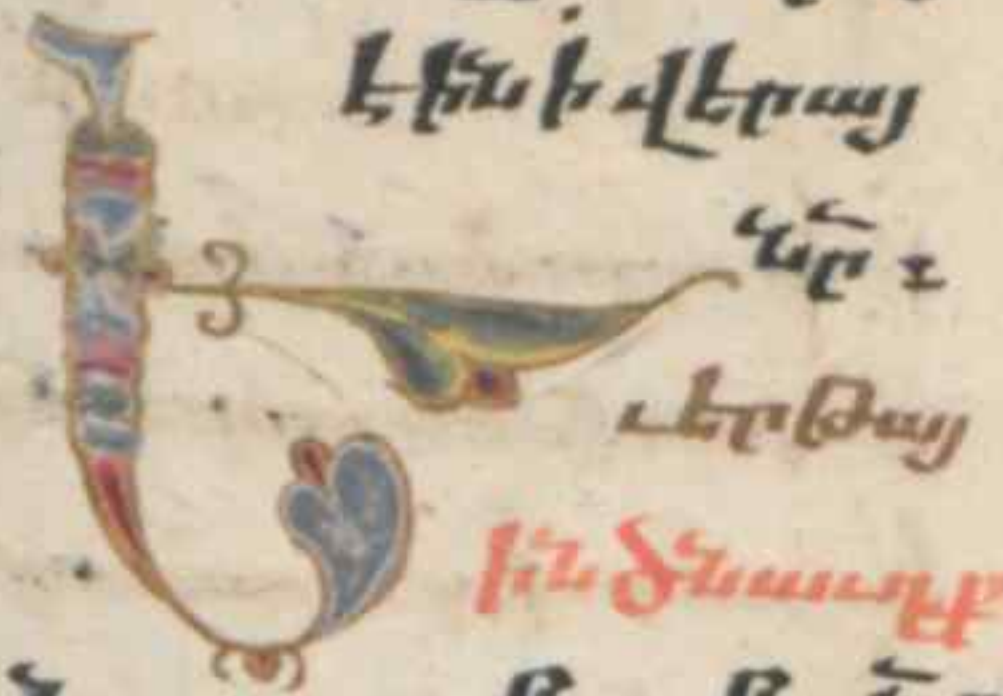 էին ի վերայ
նր՟ ։
Եւ երթայ
ին ծնաւղք